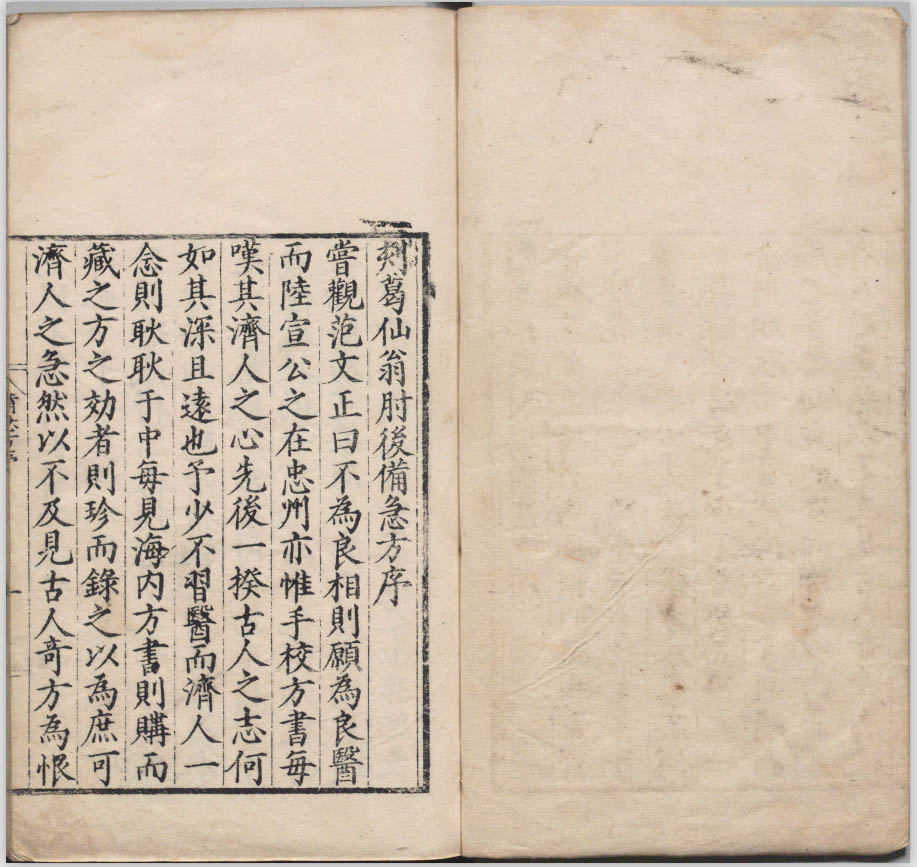 刻葛仙翁肘後備急方序
嘗觀范文正曰不為良相則願為良醫
而陸宣公之在忠州亦惟手校方書每
嘆其濟人之心先後一揆古人之志何
如其深且遠也予少不習醫而濟人一
念則耿耿于中每見海内方書則購而
藏之方之効者則珍而錄之以為庶可
濟人之急然以不及見古人奇方為恨